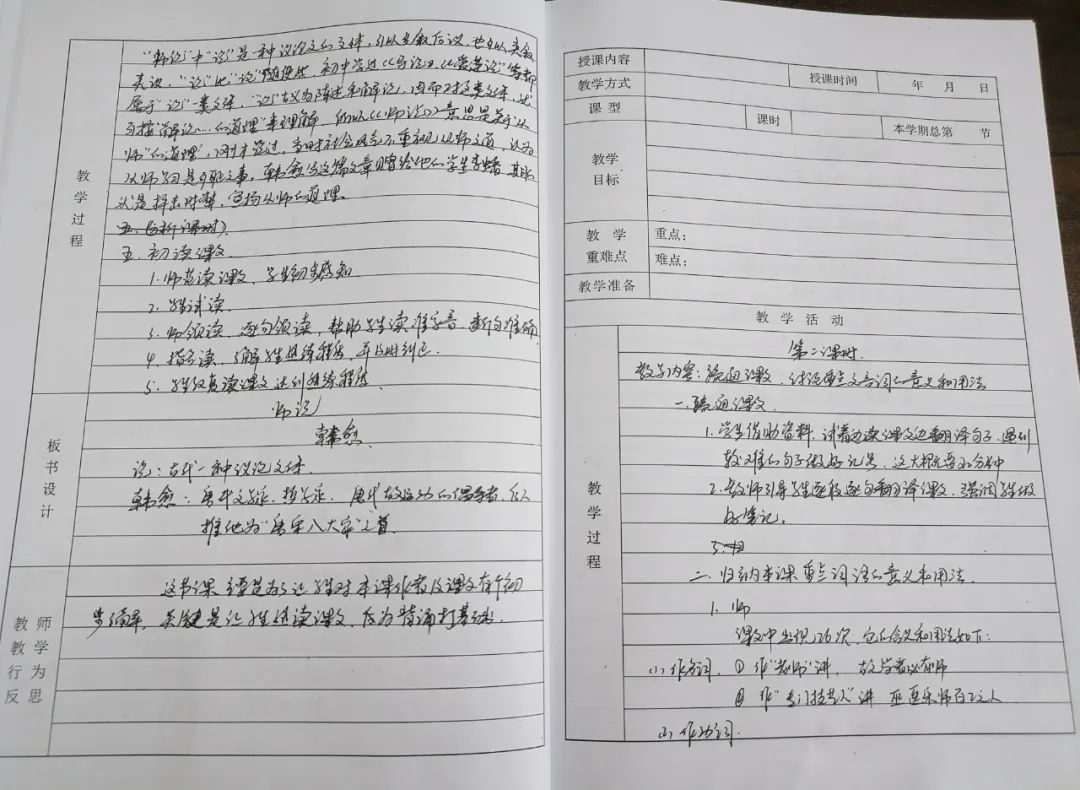 教学过程
"师说"中"说"是一种议论文的文体，可以先叙后议，也可以夹叙
夹议。"说"比"论"随便些。初中学过《马说》《爱莲说》等都
属于"说"一类文体。"说"古义为陈述和解说，因而对这类文体，就
可按"解说……的道理"来理解。所以《师说》意思是关于"从
师"的道理，刚才说过，当时社会风气不重视从师之道，认为
从师学习是可耻之事，韩愈写这篇文章赠给他的学生李蟠，其
是抨击时弊，宣扬从师的道理。
五.
五. 初读课文
1. 师范读课文，学生初步感知
2. 学生试读.
3. 师领读，逐句领读，帮助学生读准字音，断句准确
4. 指名读，了解学生熟练程度，并及时纠正.
5. 学生仅真读课文达到熟练程度.
板书设计
师说
韩愈
说：古代一种议论文体.
韩愈：唐代文学家，哲学家，唐代古文运动的倡导者，后人
推他为"唐宋八大家"之首
教师教学行为反思
这节课主要是为了让学生对本课作者及课文有个初
步了解，关键是让学生熟读课文，后为背诵打基础.
授课内容
授课时间 年 月 日
教学方式
课型
课时
本学期总第 节
教学目标
教学重难点
重点：
难点：
教学准备
教学活动
教学过程
第二课时.
教学内容：疏通课文，讨论重点文言词的意义和用法
一. 疏通课文.
1. 学生借助资料，试着边读课文边翻译句子，遇到
较难的句子做好记号，这大概需要20分钟
2. 教师引导学生逐段逐句翻译课文，强调学生做
好笔记。
3. 归
二. 归纳本课重点词语的意义和用法.
1. 师
课文中出现26次，它的含义和用法如下：
(1) 作名词. ① 作"老师"讲， 古之学者必有师
② 作"专门技艺人"讲 巫医乐师百工之人
(2) 作动词.